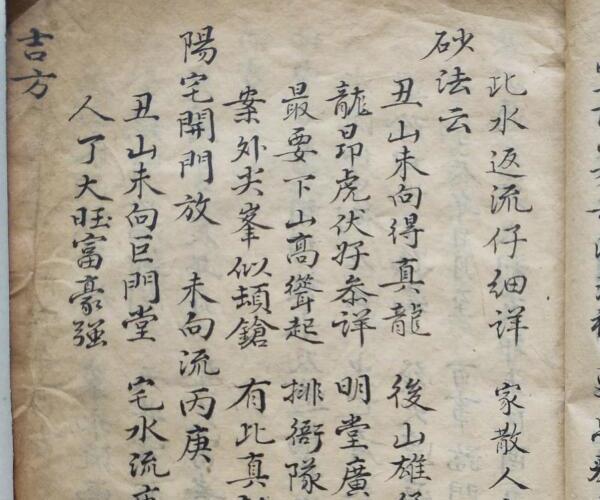 此水返流仔細詳 家散人
砂法云
丑山未向得真龍 後山雄
龍昂虎伏好叅詳 明堂廣
最要下山高聳起 排衙隊
案外尖峯似頓鎗 有此真
陽宅開門放 未向流丙庚
丑山未向巨門堂 宅水流
人丁大旺富豪強
吉方